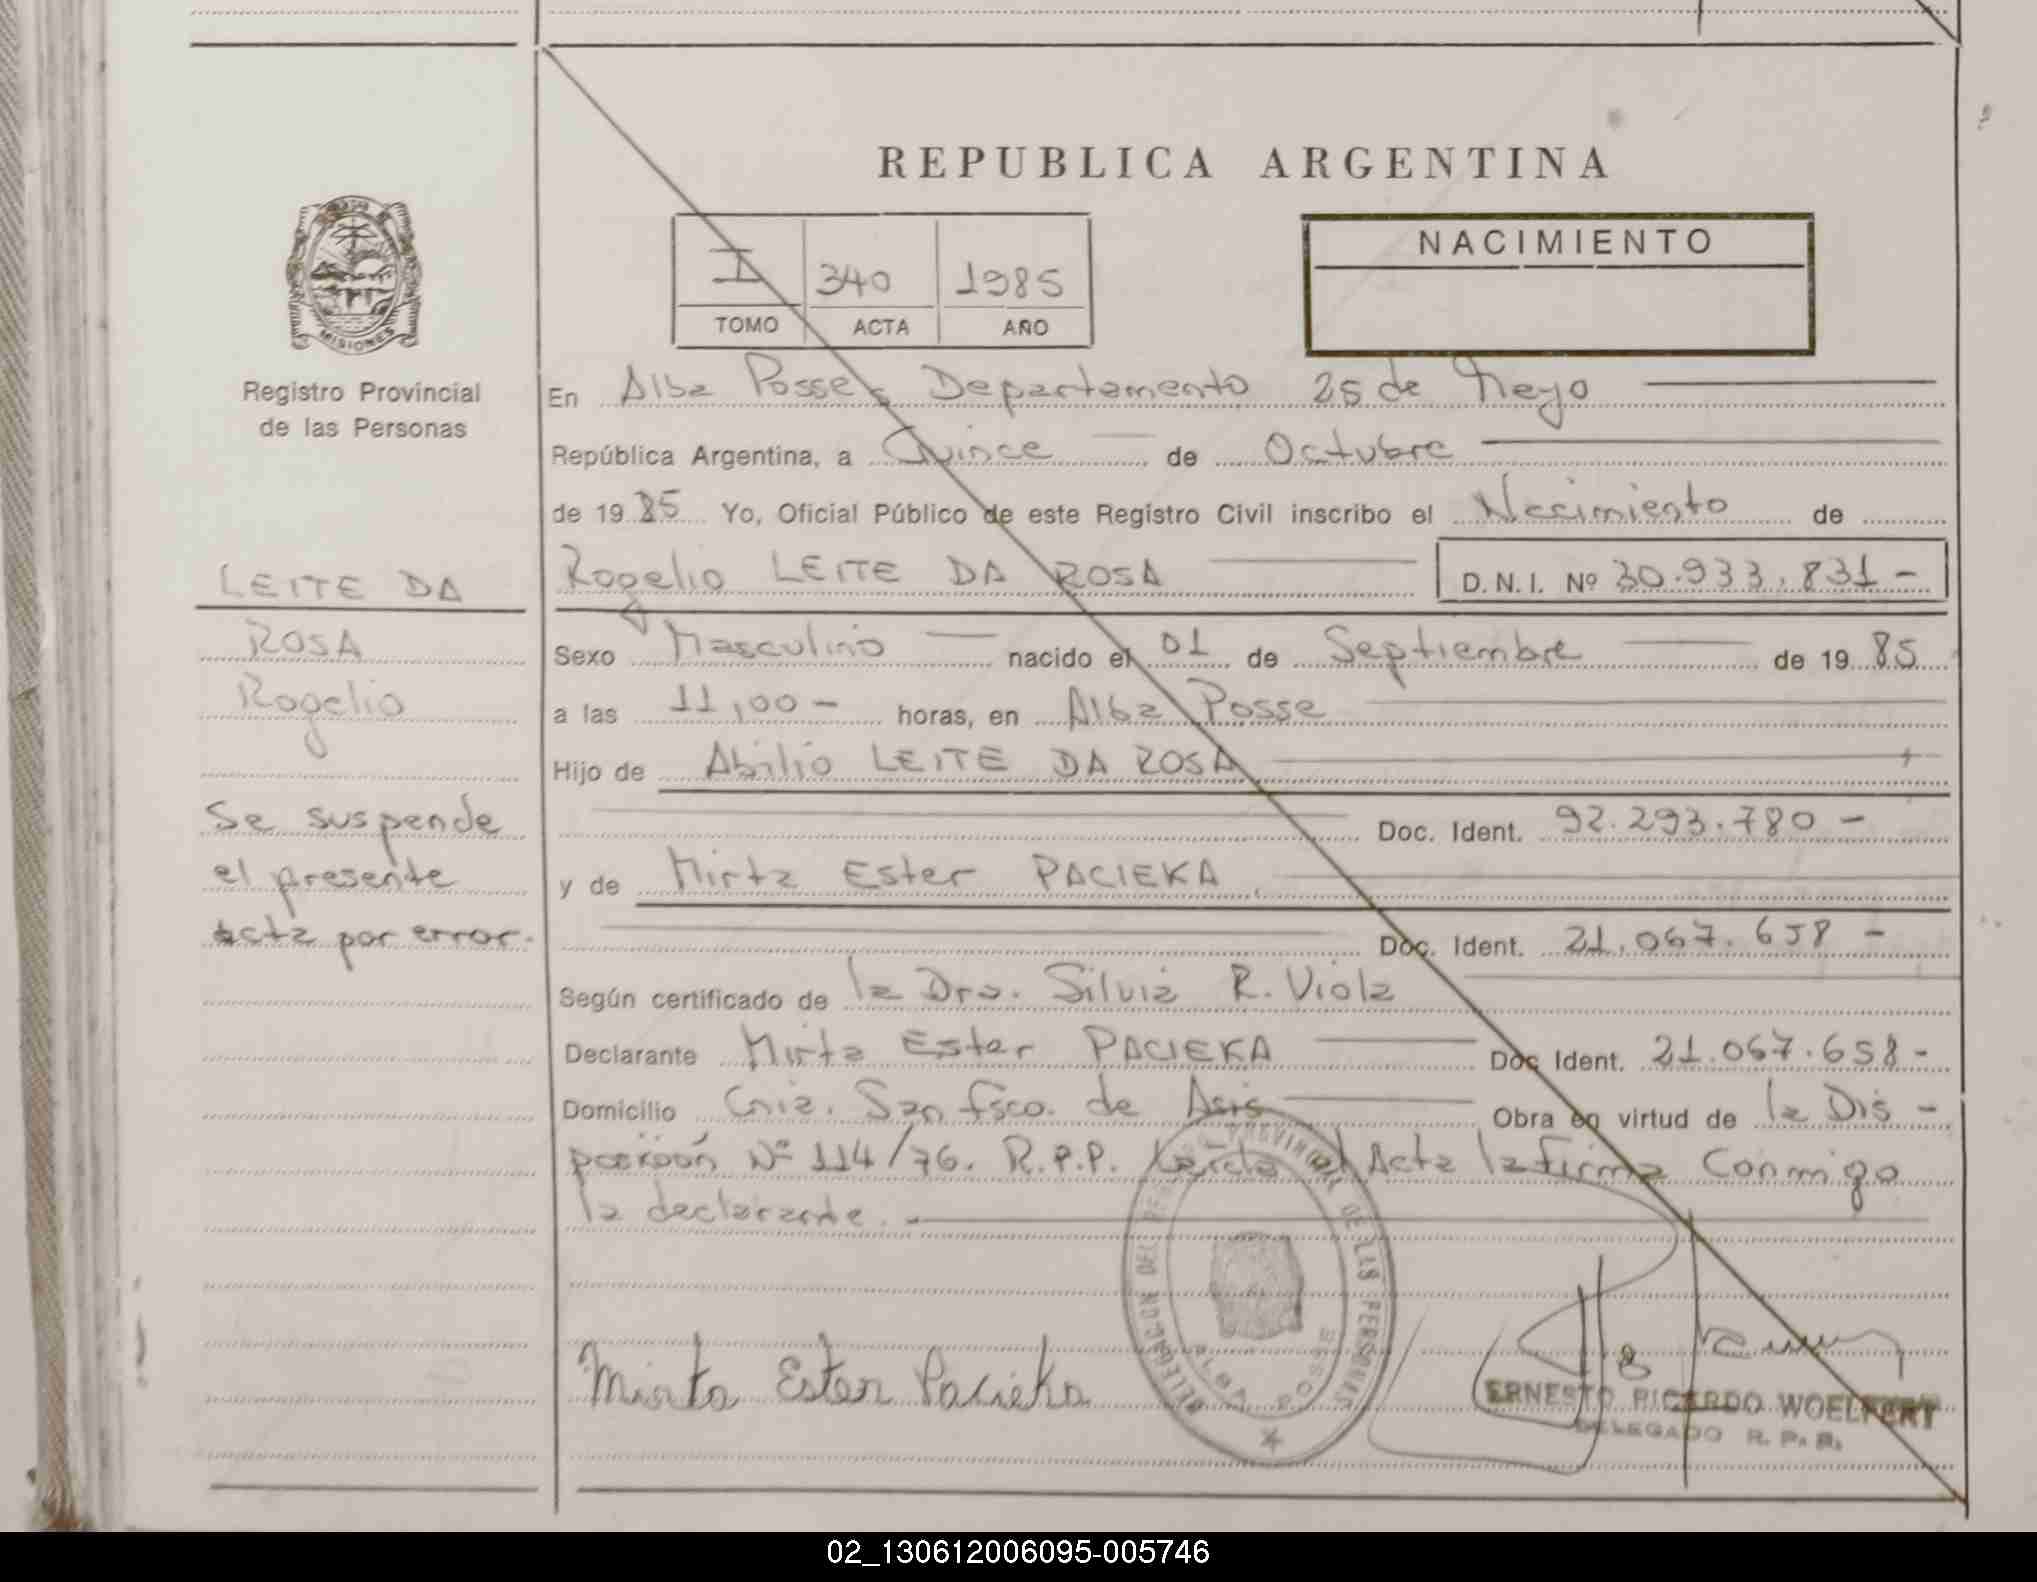 REPUBLICA ARGENTINA
I 340 1985
TOMO ACTA AÑO
NACIMIENTO
MISIONES
Registro Provincial
de las Personas
LEITE DA
ROSA
Rogelio
Se suspende
el presente
Acta por error.
En Alba Posse, Departamento 25 de Mayo
República Argentina, a Quince de Octubre
de 1985 Yo, Oficial Público de este Registro Civil inscribo el Nacimiento de
Rogelio LEITE DA ROSA D.N.I. Nº 30.933.831-
Sexo Masculino nacido el 01 de Septiembre de 1985
a las 11,00- horas, en Alba Posse
Hijo de Abilio LEITE DA ROSA
Doc. Ident. 92.293.780-
y de Mirta Ester PACIEKA
Doc. Ident. 21.067.658-
Según certificado de la Dra. Silvia R. Viola
Declarante Mirta Ester PACIEKA Doc Ident. 21.067.658-
Domicilio Cnia. San Fsco. de Asis Obra en virtud de la Dis-
posición Nº 114/76. R.P.P. Leída el Acta la firma Conmigo
la declarante.-
DELEGACION DEL REGISTRO PROVINCIAL DE LAS PERSONAS
ALBA POSSE
Mirta Ester Pacieka
ERNESTO RICARDO WOELFERT
DELEGADO R. P. P.
02_130612006095-005746